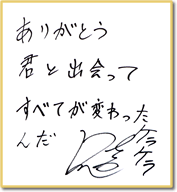 ありがとう
君と出会って
すべてが変わった
んだ
ケラケラ